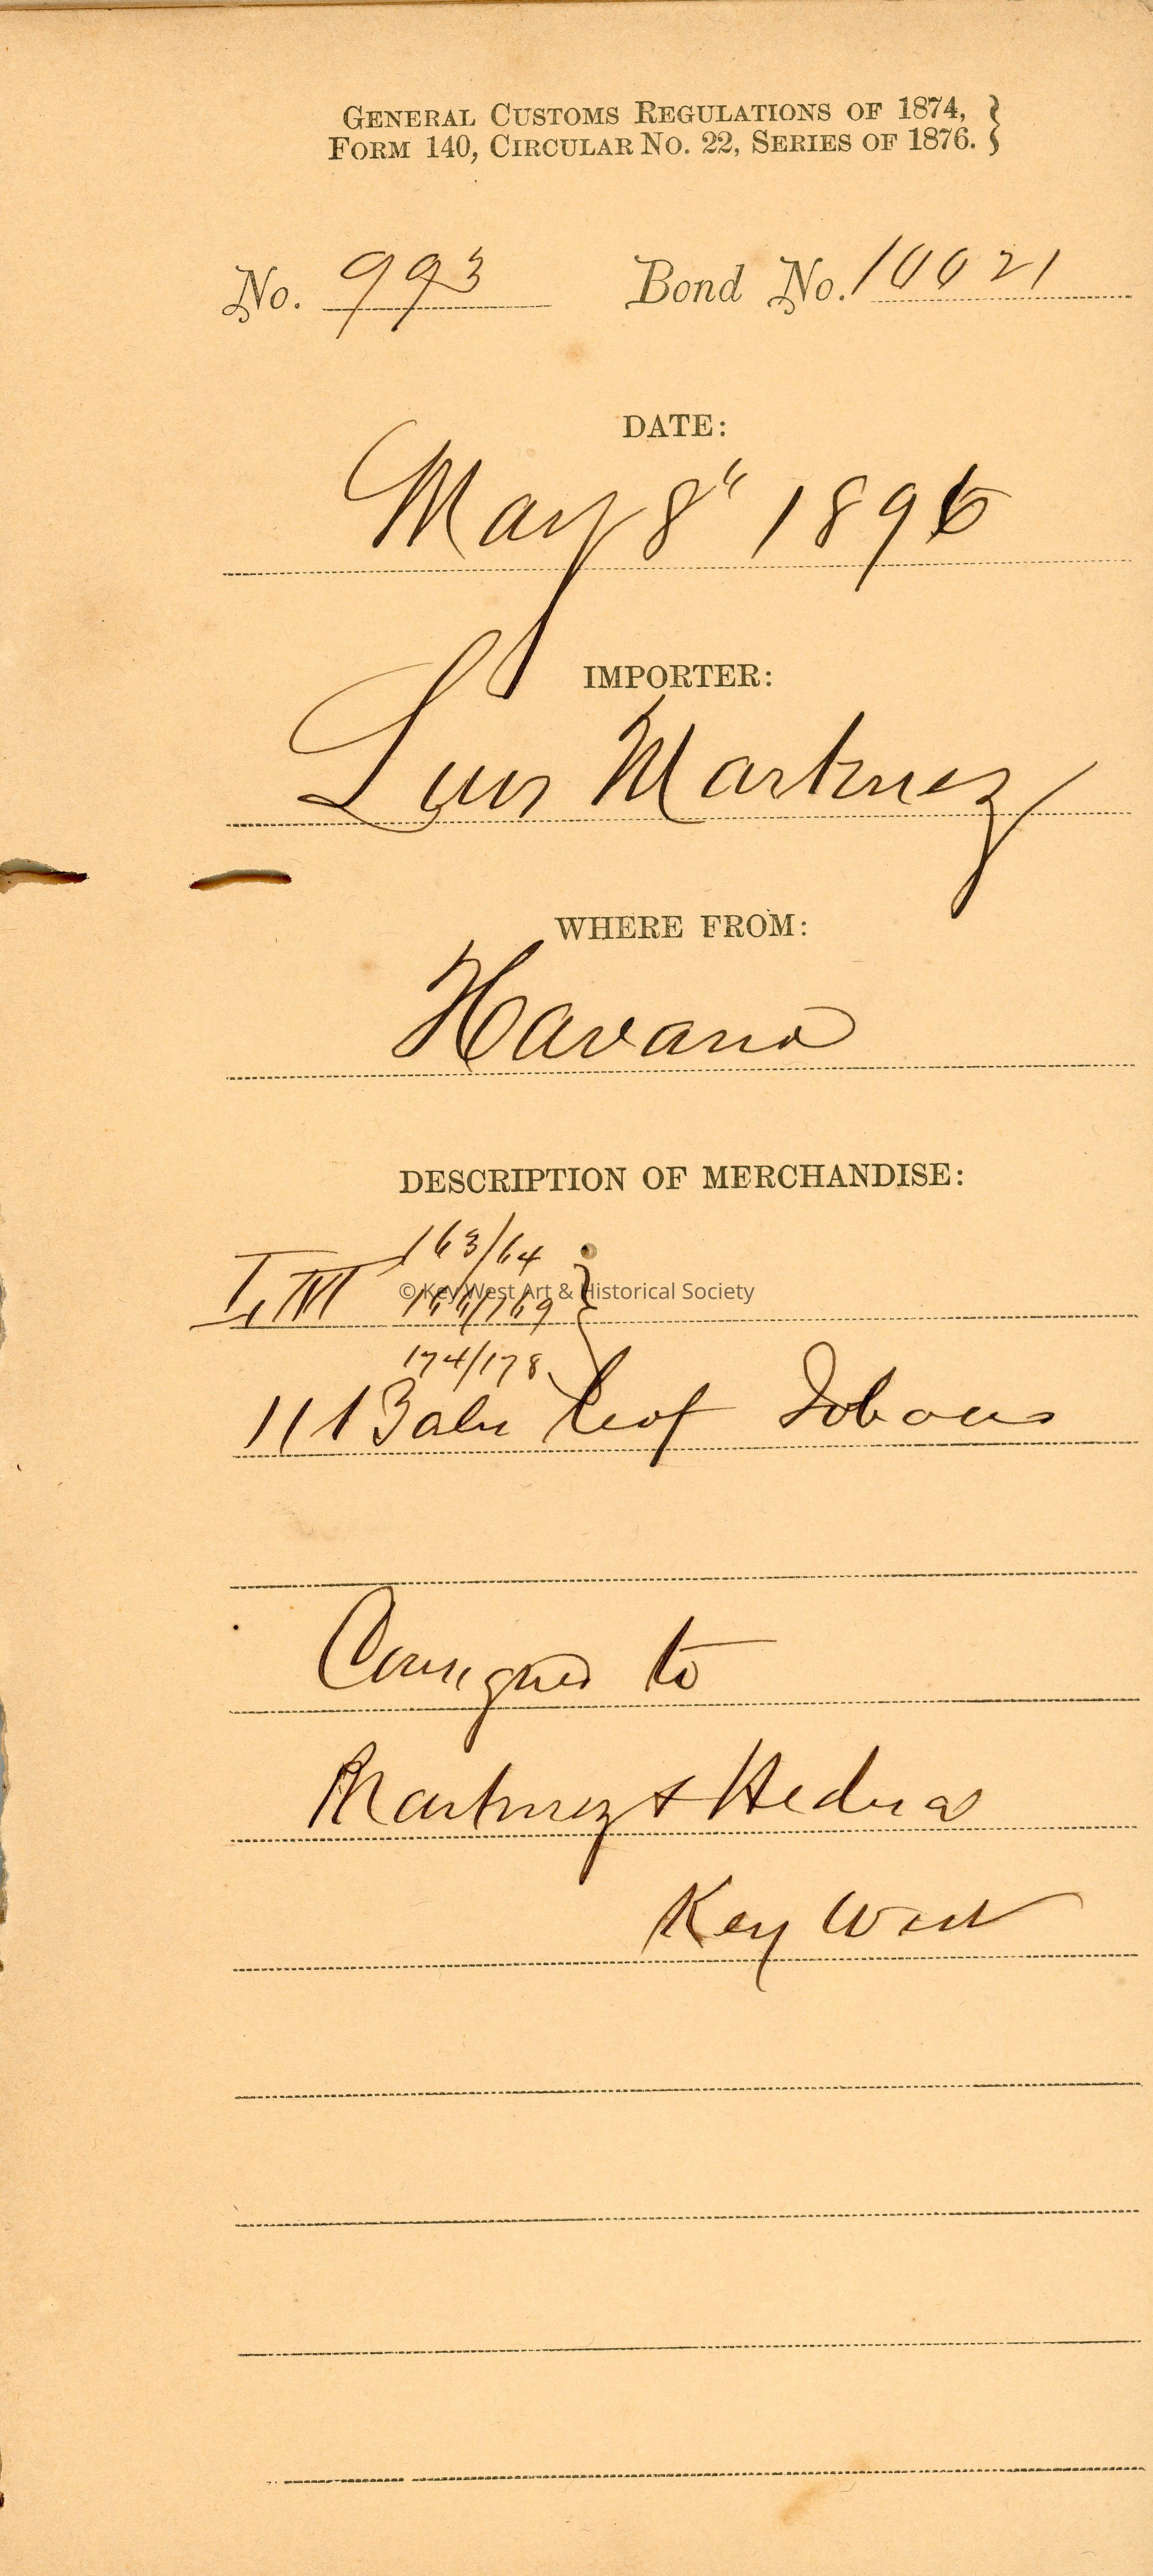 GENERAL CUSTOMS REGULATIONS OF 1874,
FORM 140, CIRCULAR NO. 22, SERIES OF 1876. }
No. 993 Bond No. 10021
DATE:
May 8" 1896
IMPORTER:
Luis Martinez
WHERE FROM:
Havana
DESCRIPTION OF MERCHANDISE:
163/64
L, M
© Key West Art & Historical Society
174/178
11 Bales leaf Tobacco
Consigned to
Martinez &
Key West